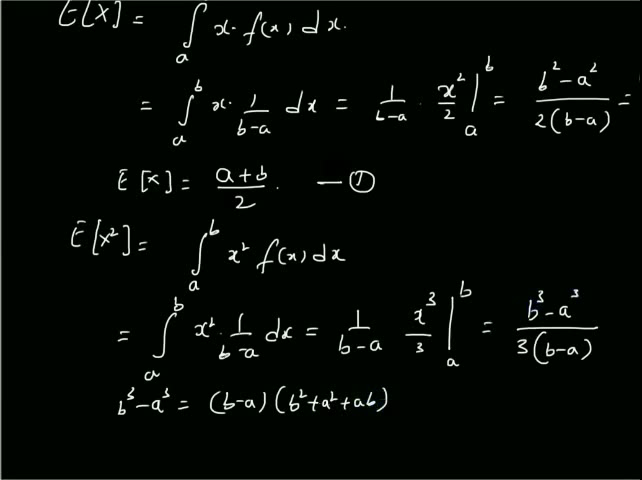 E[X] = ∫_a x. f(x) dx.
= ∫_a^b x. 1/(b-a) dx = 1/(b-a) . x²/2 |_a^b = (b²-a²)/(2(b-a)) =
E[X] = (a+b)/2 . — ①
E[X²] = ∫_a^b x² f(x) dx
= ∫_a^b x². 1/(b-a) dx = 1/(b-a) x³/3 |_a^b = (b³-a³)/(3(b-a))
b³-a³ = (b-a)(b²+a²+ab)